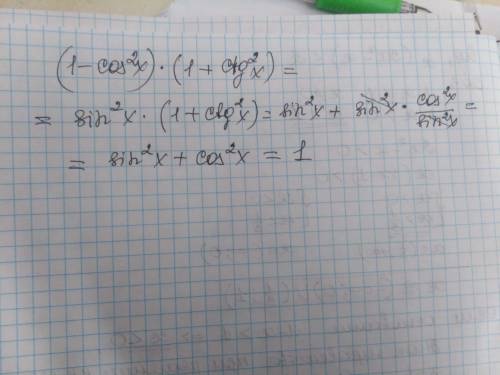 (1-cos²x)·(1+ctg²x)=
= sin²x·(1+ctg²x)= sin²x + sin²x · cos²x/sin²x =
= sin²x + cos²x = 1